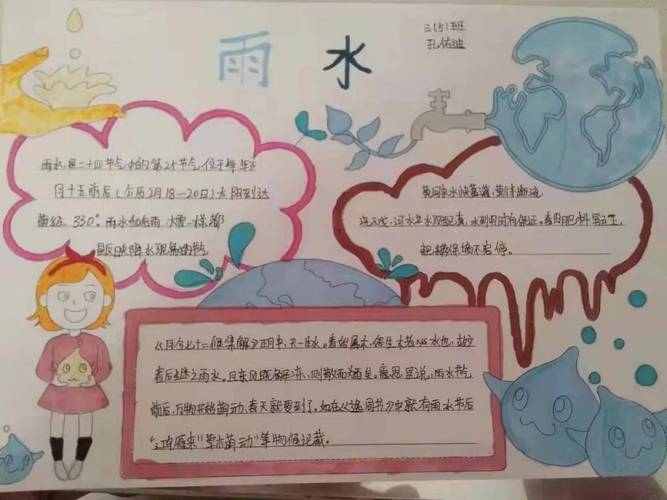 雨水
三(5)班
孔佑迪
雨水,是二十四节气中的第2个节气,位于每年正
月十五前后(公历2月18—20日)太阳到达
黄经330°雨水和雨 大雪一样都
是反映降水现象的
黄河 水
河水 水
肥料
把 保墒不容停。
《月令七十二候集解》正月中,天一生水。春始属木,然生木者必水也,故立
春后继之雨水。且东风既解冻,则散而为雨矣。意思是说,雨水节气
前后,万物开始萌动,春天就要到了。如在《逸周书》中就有雨水节后
"鸿雁来""草木萌动"等物候记载。